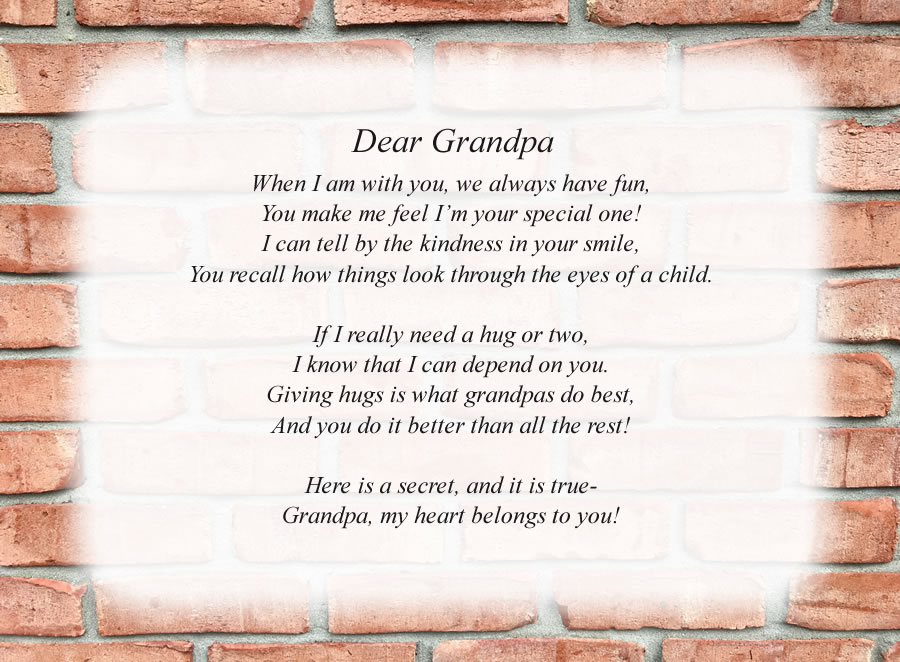 Dear Grandpa
When I am with you, we always have fun,
You make me feel I’m your special one!
I can tell by the kindness in your smile,
You recall how things look through the eyes of a child.
If I really need a hug or two,
I know that I can depend on you.
Giving hugs is what grandpas do best,
And you do it better than all the rest!
Here is a secret, and it is true-
Grandpa, my heart belongs to you!